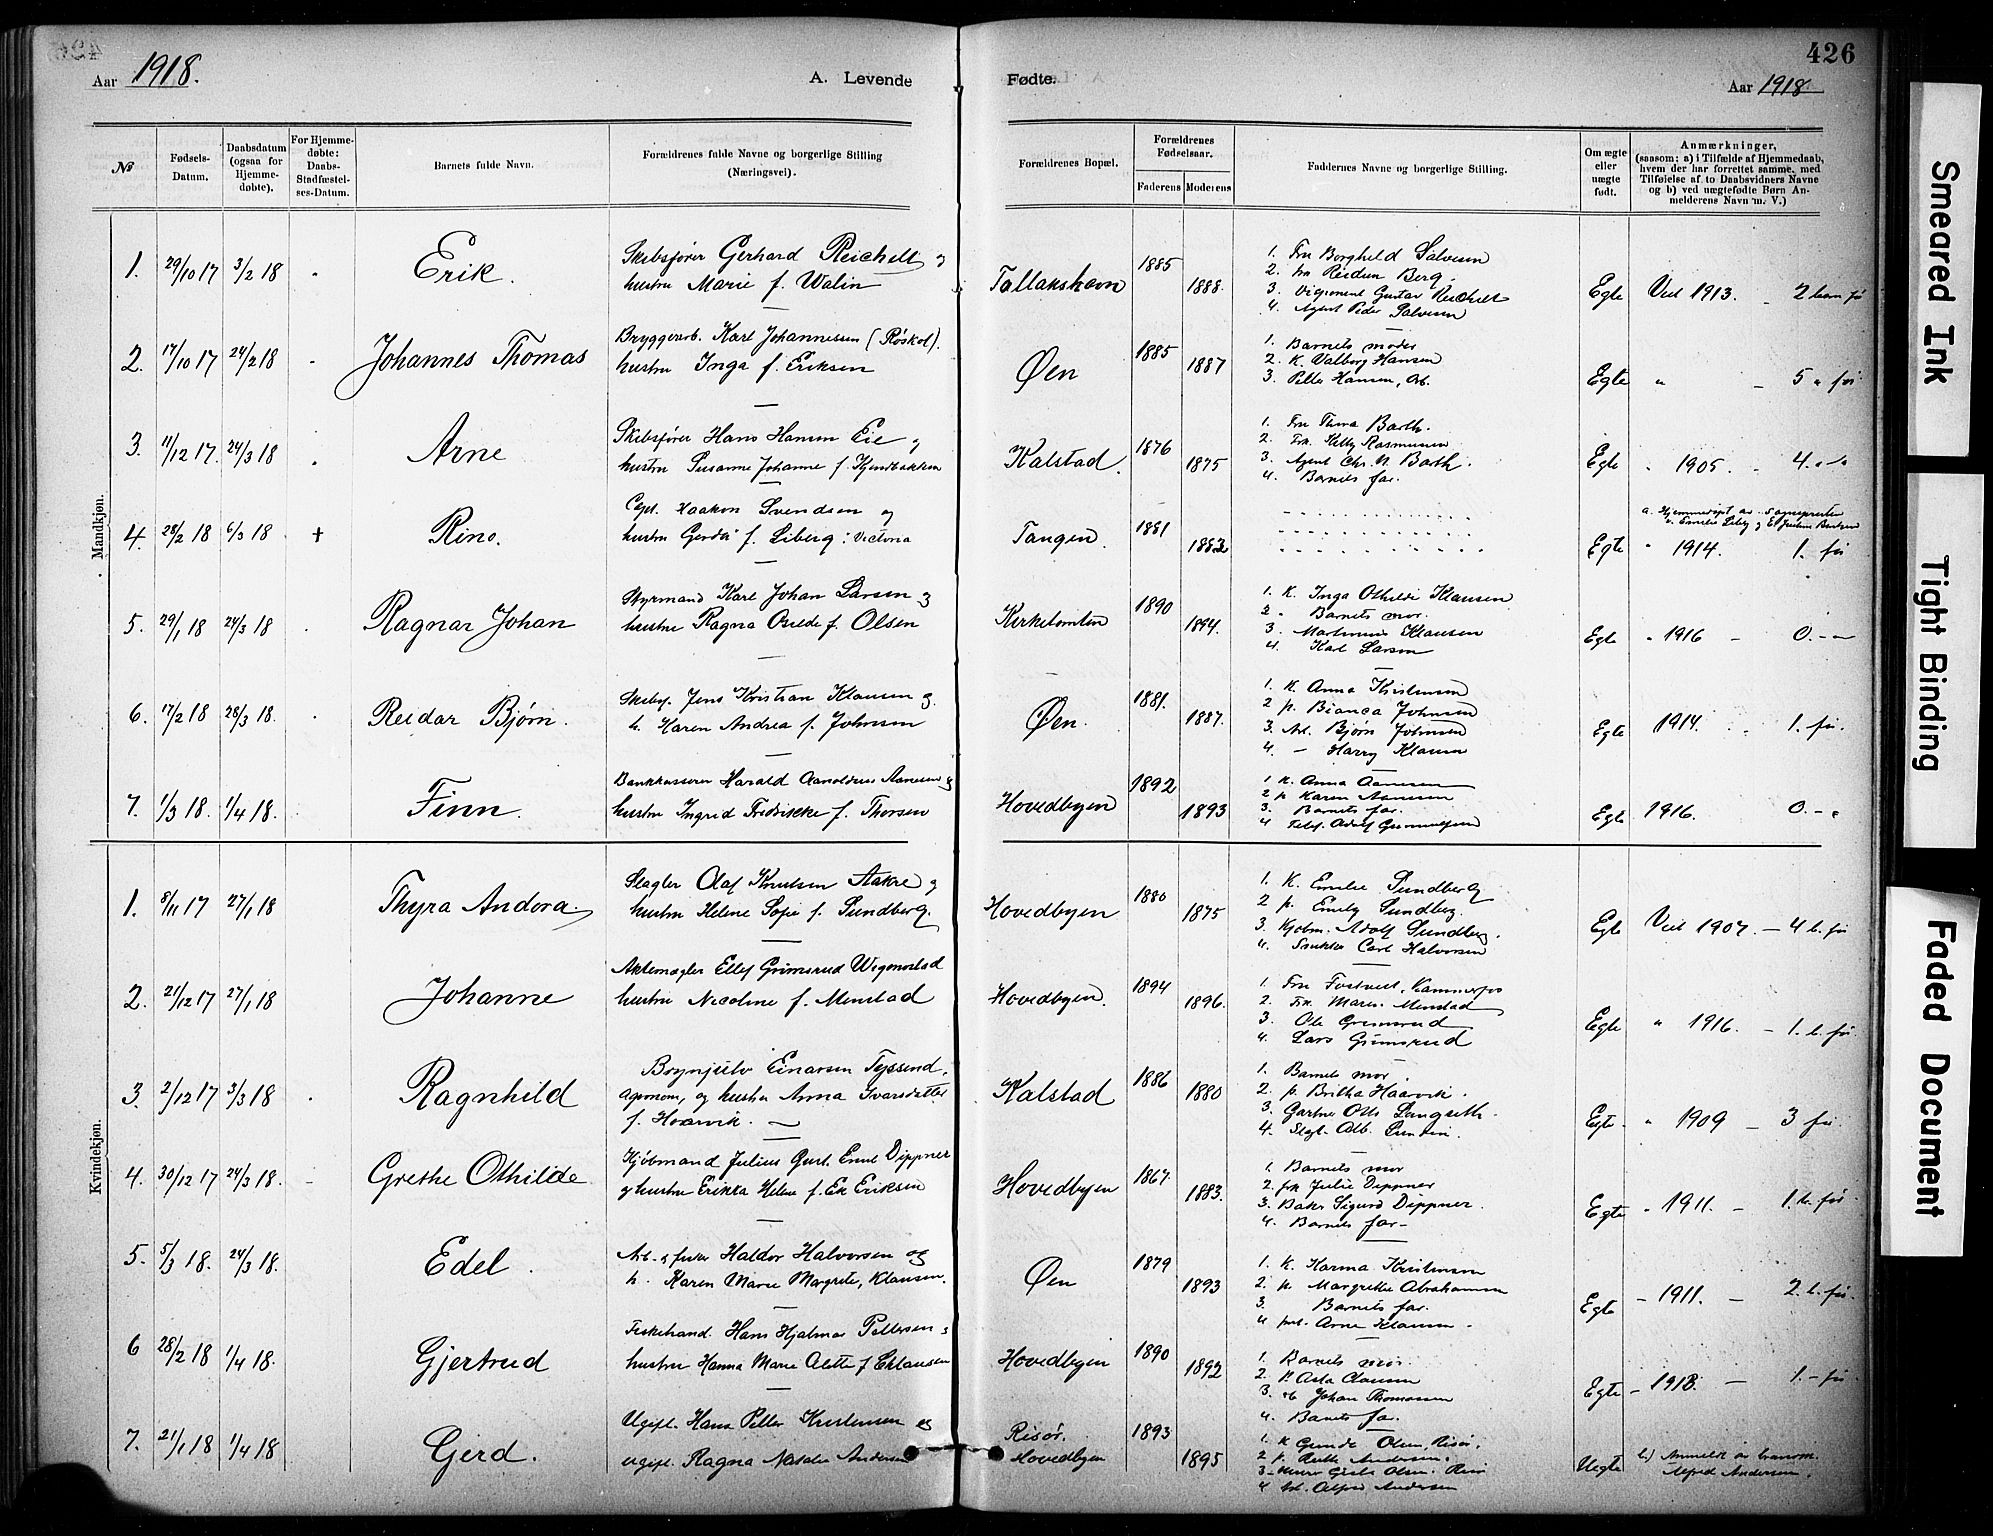 426
Aar 1918.
A. Levende
Fødte.
Aar 1918
№
Fødsels-Datum.
Daabsdatum (ogsaa for Hjemme-døbte).
For Hjemme-døbte: Daabs-Stadfæstel-ses-Datum.
Barnets fulde Navn.
Forældrenes fulde Navne og borgerlige Stilling (Næringsvei).
Forældrenes Bopæl.
Forældrenes Fødselsaar.
Faderens
Moderens
Faddernes Navne og borgerlige Stilling.
Om ægte eller uægte født.
Anmærkninger,
(saasom: a) i Tilfælde af Hjemmedaab,
hvem der har forrettet samme, med
Tilføielse af to Daabsvidners Navne
og b) ved uægtefødte Børn An-
melderens Navn m. V.)
Mandkjøn.
1. 29/10 17 3/2 18 Erik. Skibsfører Gerhard Reichelt og
hustru Marie f. Walin
Tallakshavn 1885 1888.
1. Fru Borghild Salvesen
2. Reidun Berg.
3. Gustav Reichelt
4. Agent Peder Salvesen
Egte Viet 1913. - 2 barn før
2. 17/10 17 24/2 18 Johannes Thomas Bryggearb. Karl Johannessen (Røskol).
hustru Inga f. Eriksen
Øen 1885 1887
1. Barnets moder
2. K. Valborg Hansen
3. Petter Hansen, Arb.
Egte " - 5 " før.
3. 11/12 17. 24/3 18 Arne Skibsfører Hans Hansen Eie og
hustru Susanne Johanne f.
Kalstad. 1876 1875
1. Fru Thora Barth.
2. Frk. Rasmussen
3. Agent Chr. N. Barth.
4. Barnets far.
Egte " 1905. - 4.
4. 28/2 18 6/3 18 + Rino. Capt. Haakon Svendsen og
hustru Gerda f. Liberg : Victoria
Tangen. 1881 1883
a. Hjemmedøpt av
Egte " 1914. 1. før
5. 29/1 18 24/3 18 Ragnar Johan Styrmand Karl Johan Larsen og
hustru Ragna f. Olsen
Kirketomten 1890 1894.
1. K. Inga Othilde Klausen
2. Barnets mor.
3. Martinius Klausen
4. Karl Larsen
Egte " 1916 - 0.
6. 17/2 18 28/3 18. Reidar Bjørn. Skibsf. Jens Kristian Klausen og
h. Karen Andrea f. Johnsen
Øen. 1881. 1887.
1. K. Anna Kristensen
2 p. Bianca Johnsen
3. Arb. Bjørn Johnsen
4. - Harry Klausen
Egte 1914. 1. før.
7. 1/3 18. 1/4 18. Finn. Bankkasserer Harald Aanesen og
hustru Ingrid Fredrikke f. Thorsen
Hovedbyen 1892 1893
1 K. Anna Aanesen
2 p Karen Aanesen
3. Barnets far.
4 Adolf
Egte 1916. 0.
Kvindekjøn.
1. 8/11 17 27/1 18 Thyra Andora. Slagter Olaf Knutsen Aakre og
hustru Helene Sofie f. Sundberg.
Hovedbyen 1880 1875
1. K. Emilie Sundberg
2 p. Emely Sundberg.
3. Kjøbm. Adolf Sundberg.
4. Carl Halvorsen
Egte Viet 1907. - 4 b. før
2. 21/12 17 27/1 18 Johanne Aktemægler Ellef Grimsrud
hustru Nicoline f. Menstad
Hovedbyen. 1894 1896.
1. Fru Fostvedt,
2. Frk. Marie Menstad
3. Ole Grimsrud
4. Lars Grimsrud
Egte " 1916. - 1. b. før.
3. 2/12 17 3/3 18 Ragnhild Brynjulv Einarsen
agronom, og hustru Anna Ivarsdatter
f. Haavik.
Kalstad 1886 1880
1. Barnets mor.
2. p. Britha Haavik.
3. Gartner Langseth.
4. Alb. Lundin.
Egte " 1909 - 3 før.
4. 30/12 17 24/3 18. Grethe Othilde Kjøbmand Julius Gust. Emil Dippner
og hustru Erikka Helene f. Eriksen
Hovedbyen 1867. 1883.
1. Barnets mor
2. frk Julie Dippner
3. Baker Sigurd Dippner.
4. Barnets far-
Egte " 1911. - 1 b. før.
5. 5/3 18. 24/3 18. Edel. Arb. & fisker Haldor Halvorsen og
h. Karen Marie Margrete, Klausen.
Øen 1879 1893
1. K. Karma Kristensen
2. p. Margrethe Abrahamsen
3. Barnets far.
4 Arne Klausen.
Egte - 1911. - 2. b. før.
6 28/2 18 1/4 18. Gjertrud Fiskehand. Hans Hjalmar Pettersen
hustru Hanna Marie Alette f
Hovedbyen 1890 1892
1. Barnets mor.
2. p. Asta Clausen
3. Johan Thomassen
4. Barnets far.
Egte - 1918. - 1. - før
7. 21/1 18 1/4 18 Gerd. Ugift. Hans Petter Kristensen og
ugift. Ragna Andersen
Risør. Hovedbyen 1893 1895
1. K Gunda Olsen, Risør.
2 p. Ruth Andersen.
3 - Olsen. Risør
4 Arb. Alfred Andersen
Uegte b) Anmeldt av
Alfred Andersen.
Smeared Ink
Tight Binding
Faded Document